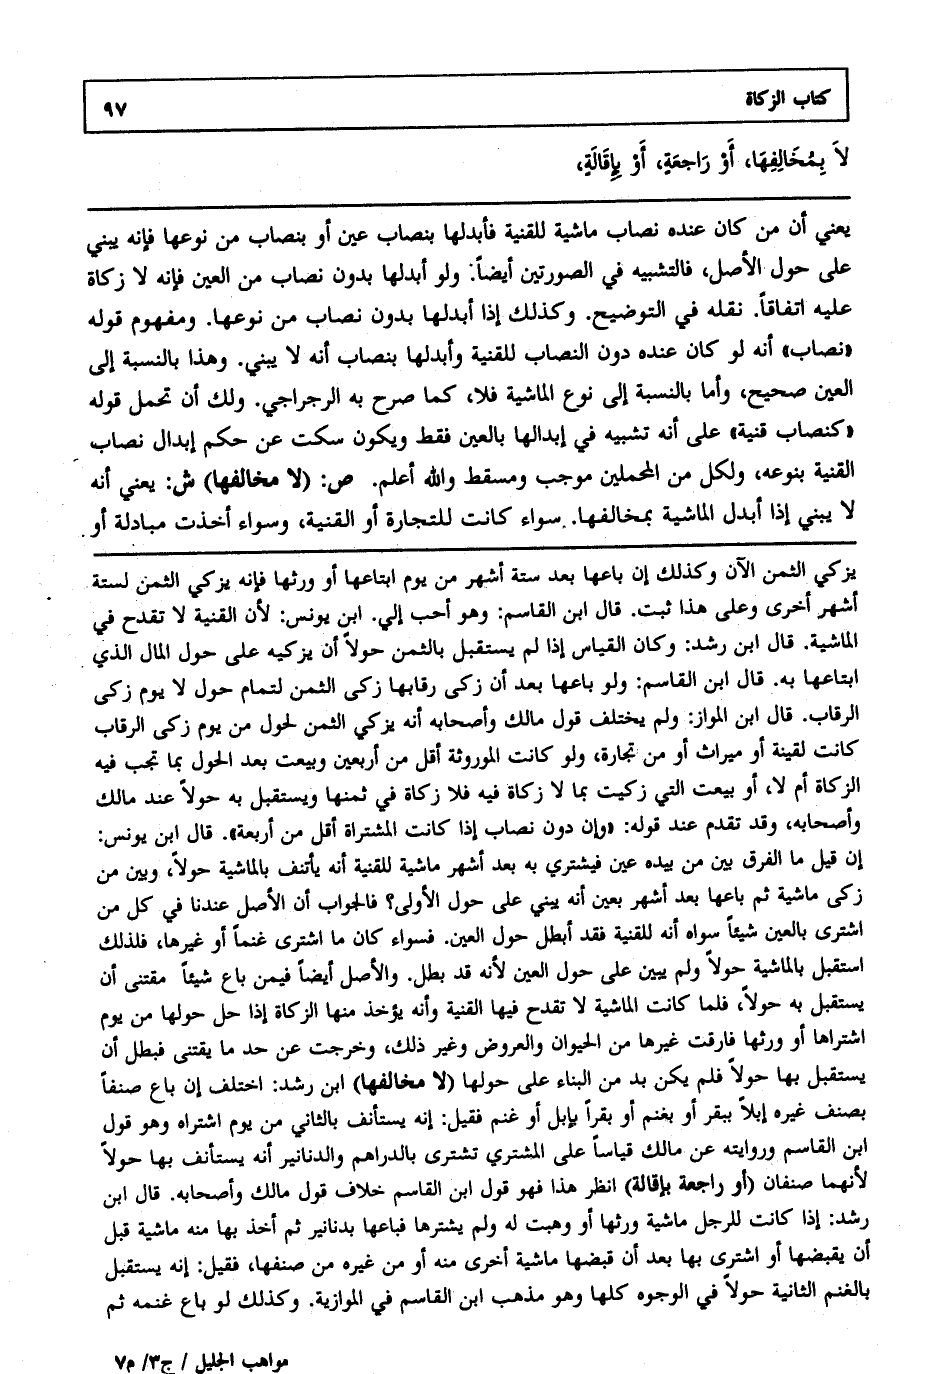 كتاب الزكاة ٩٧
لاَ بِمُخَالِفِهَا، أَوْ رَاجعَةٍ، أَوْ بِإِقَالَةٍ،
يعني أن من كان عنده نصاب ماشية للقنية فأبدلها بنصاب عين أو بنصاب من نوعها فإنه يبني
على حول الأصل، فالتشبيه في الصورتين أيضاً. ولو أبدلها بدون نصاب من العين فإنه لا زكاة
عليه اتفاقاً. نقله في التوضيح. وكذلك إذا أبدلها بدون نصاب من نوعها. ومفهوم قوله
«نصاب» أنه لو كان عنده دون النصاب للقنية وأبدلها بنصاب أنه لا يبني. وهذا بالنسبة إلى
العين صحيح، وأما بالنسبة إلى نوع الماشية فلا، كما صرح به الرجراجي. ولك أن تحمل قوله
«كنصاب قنية» على أنه تشبيه في إبدالها بالعين فقط ويكون سكت عن حكم إبدال نصاب
القنية بنوعه، ولكل من المحملين موجب ومسقط والله أعلم. ص: (لا مخالفها) ش: يعني أنه
لا يبني إذا أبدل الماشية بمخالفها. سواء كانت للتجارة أو القنية، وسواء أخذت مبادلة أو
يزكي الثمن الآن وكذلك إن باعها بعد ستة أشهر من يوم ابتاعها أو ورثها فإنه يزكي الثمن لستة
أشهر أخرى وعلى هذا ثبت. قال ابن القاسم: وهو أحب إلي. ابن يونس: لأن القنية لا تقدح في
الماشية. قال ابن رشد: وكان القياس إذا لم يستقبل بالثمن حولاً أن يزكيه على حول المال الذي
ابتاعها به. قال ابن القاسم: ولو باعها بعد أن زكى رقابها زكى الثمن لتمام حول لا يوم زكى
الرقاب. قال ابن المواز: ولم يختلف قول مالك وأصحابه أنه يزكي الثمن لحول من يوم زكى الرقاب
كانت لقينة أو ميراث أو من تجارة، ولو كانت الموروثة أقل من أربعين وبيعت بعد الحول بما تجب فيه
الزكاة أم لا، أو بيعت التي زكيت بما لا زكاة فيه فلا زكاة في ثمنها ويستقبل به حولاً عند مالك
وأصحابه، وقد تقدم عند قوله: «وإن دون نصاب إذا كانت المشتراة أقل من أربعة». قال ابن يونس:
إن قيل ما الفرق بين من بيده عين فيشتري به بعد أشهر ماشية للقنية أنه يأتنف بالماشية حولاً، وبين من
زكى ماشية ثم باعها بعد أشهر بعين أنه يبني على حول الأولى؟ فالجواب أن الأصل عندنا في كل من
اشترى بالعين شيئاً سواه أنه للقنية فقد أبطل حول العين. فسواء كان ما اشترى غنماً أو غيرها، فلذلك
استقبل بالماشية حولاً ولم يبين على حول العين لأنه قد بطل. والأصل أيضاً فيمن باع شيئاً مقتنى أن
يستقبل به حولاً، فلما كانت الماشية لا تقدح فيها القنية وأنه يؤخذ منها الزكاة إذا حل حولها من يوم
اشتراها أو ورثها فارقت غيرها من الحيوان والعروض وغير ذلك، وخرجت عن حد ما يقتنى فبطل أن
يستقبل بها حولاً فلم يكن بد من البناء على حولها (لا مخالفها) ابن رشد: اختلف إن باع صنفاً
بصنف غيره إبلاً ببقر أو بغنم أو بقراً بإبل أو غنم فقيل: إنه يستأنف بالثاني من يوم اشتراه وهو قول
ابن القاسم وروايته عن مالك قياساً على المشتري تشترى بالدراهم والدنانير أنه يستأنف بها حولاً
لأنهما صنفان (أو راجعة بإقالة) انظر هذا فهو قول ابن القاسم خلاف قول مالك وأصحابه. قال ابن
رشد: إذا كانت للرجل ماشية ورثها أو وهبت له ولم يشترها فباعها بدنانير ثم أخذ بها منه ماشية قبل
أن يقبضها أو اشترى بها بعد أن قبضها ماشية أخرى منه أو من غيره من صنفها، فقيل: إنه يستقبل
بالغنم الثانية حولاً في الوجوه كلها وهو مذهب ابن القاسم في الموازية. وكذلك لو باع غنمه ثم
مواهب الجليل / ج٣/ م٧